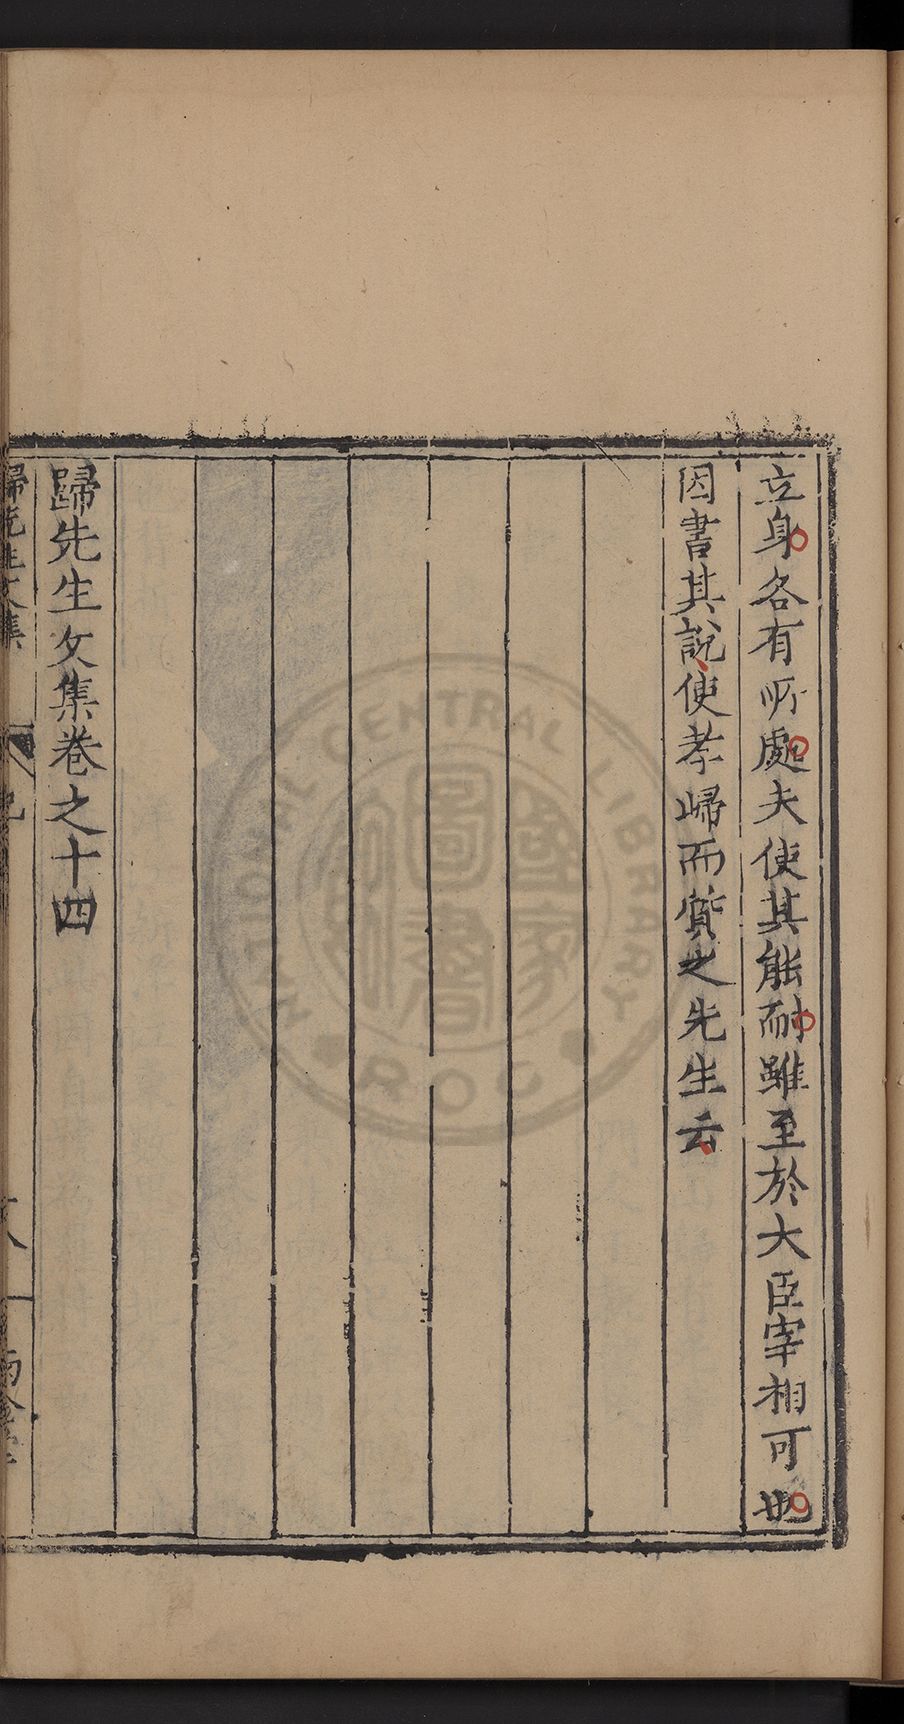 立身各有所處夫使其能耐雖至於大臣宰相可也
因書其說使孝歸而質之先生云
歸先生文集卷之十四
歸先生文集
NATIONAL CENTRAL LIBRARY
國家圖書館
ROC